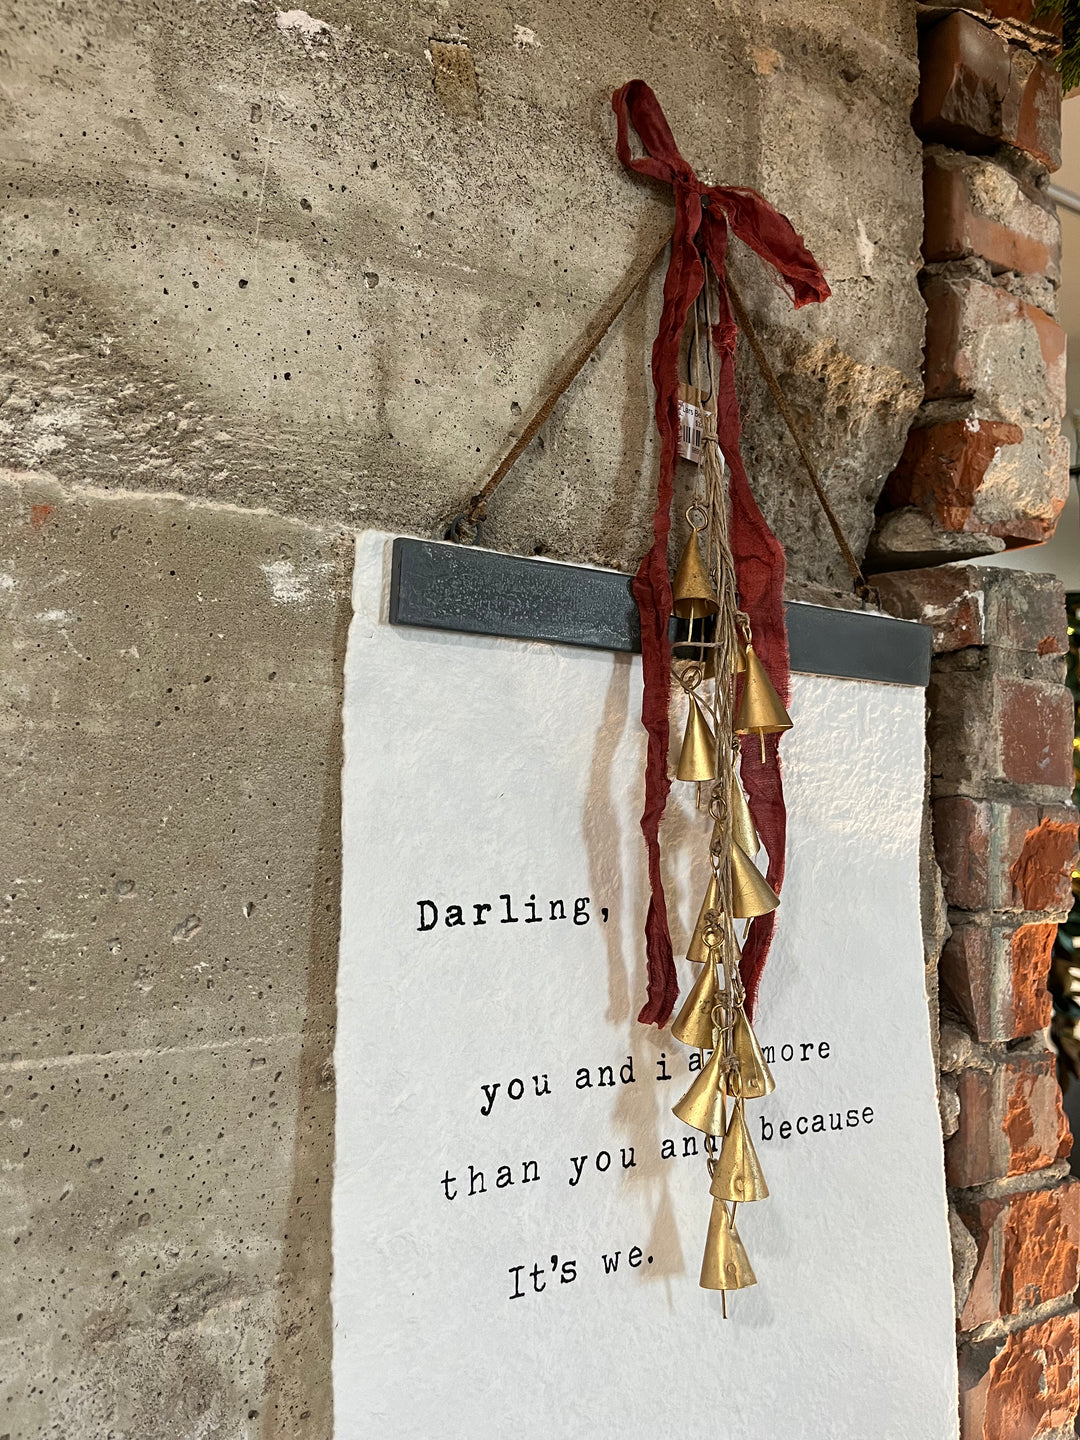 Lars
Darling,
you and i more
than you and because
It's we.